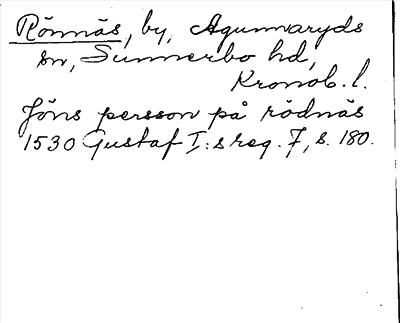 Rönnäs, by, Agunnaryds
sn, Sunnerbo hd,
Kronob. l.
Jöns persson på rödnäs
1530 Gustaf I:s reg. 7, s. 180.